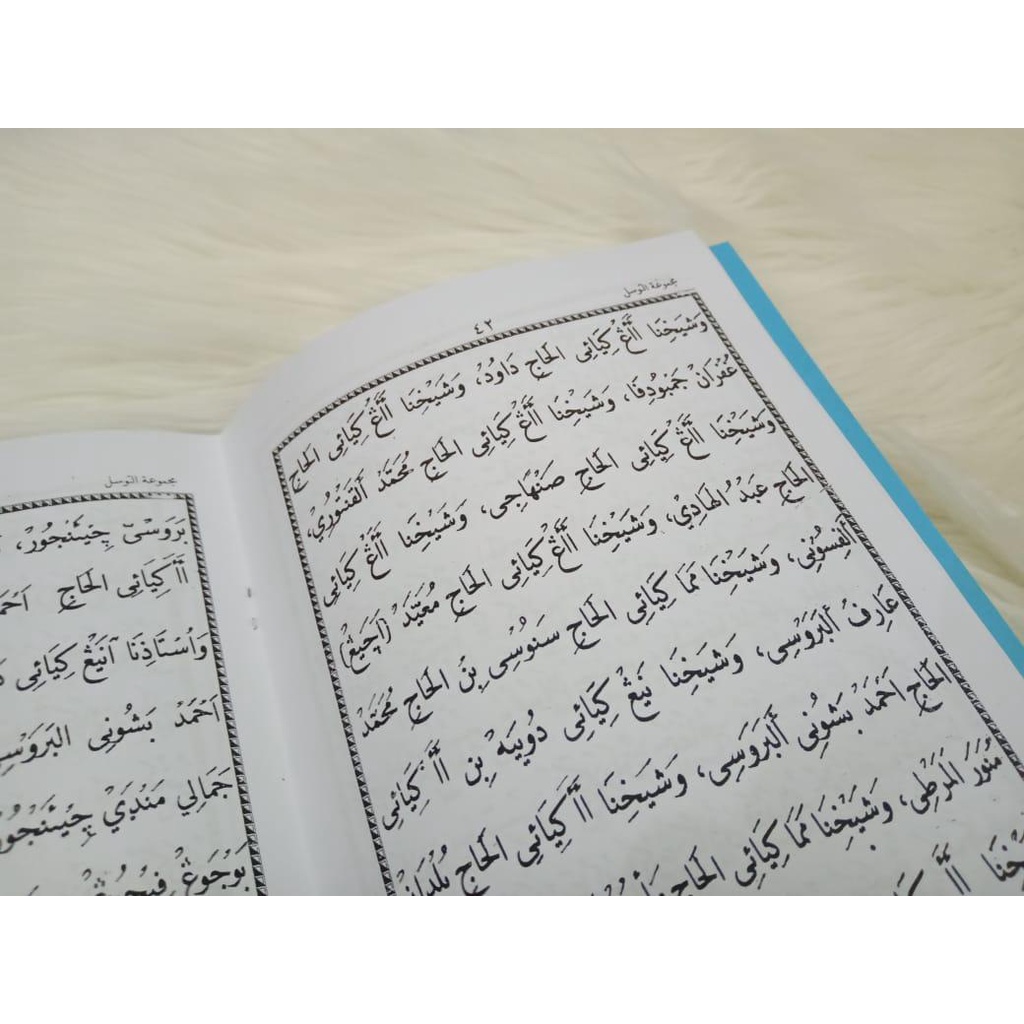 مجموعة التوسل
٤٢
وَشَيْخِنَا أَأَڠْ كِيَائِي الْحَاج دَاوُدْ، وَشَيْخِنَا أَأَڠْ كِيَائِي الْحَاج
غُفْرَانْ جَمْبُودِفَا، وَشَيْخِنَا أَأَڠْ كِيَائِي الْحَاج مُحَمَّدْ الْفَنْتُورِيْ،
وَشَيْخِنَا أَأَڠْ كِيَائِي الْحَاج صَنْهَاجِى، وَشَيْخِنَا أَأَڠْ كِيَائِي
الْحَاج عَبْدُ الْهَادِيْ، وَشَيْخِنَا أَأَڠْ كِيَائِي الْحَاج مُعَيَّدْ (اَچَيڠْ)
الْفِسُونِى، وَشَيْخِنَا مَمَا كِيَائِي الْحَاج سَنُوسِى بِنْ الْحَاج مُحَمَّدْ
عَارِفْ الْبَرَوْسِى، وَشَيْخِنَا نَيڠْ كِيَائِي دُوبَيهْ بِنْ أَأَ كِيَائِي
الْحَاج اَحْمَدْ بَشُونِى الْبَرَوْسِى، وَشَيْخِنَا أَأَ كِيَائِي الْحَاج
مُنَوَّرْ وَشَيْخِنَا مَمَا كِيَائِي الْحَاج
مجموعة التوسل
بَرَوْسْ چِيَنْجُورْ،
أَأَ كِيَائِي الْحَاج
وَاُسْتَاذِنَا آنَيڠْ كِيَائِي
اَحْمَدْ بَشُونِى الْبَرَوْسِى
جَمَالِي مَنْدَيْ چِيَنْجُورْ
بَوْجَوڠْ